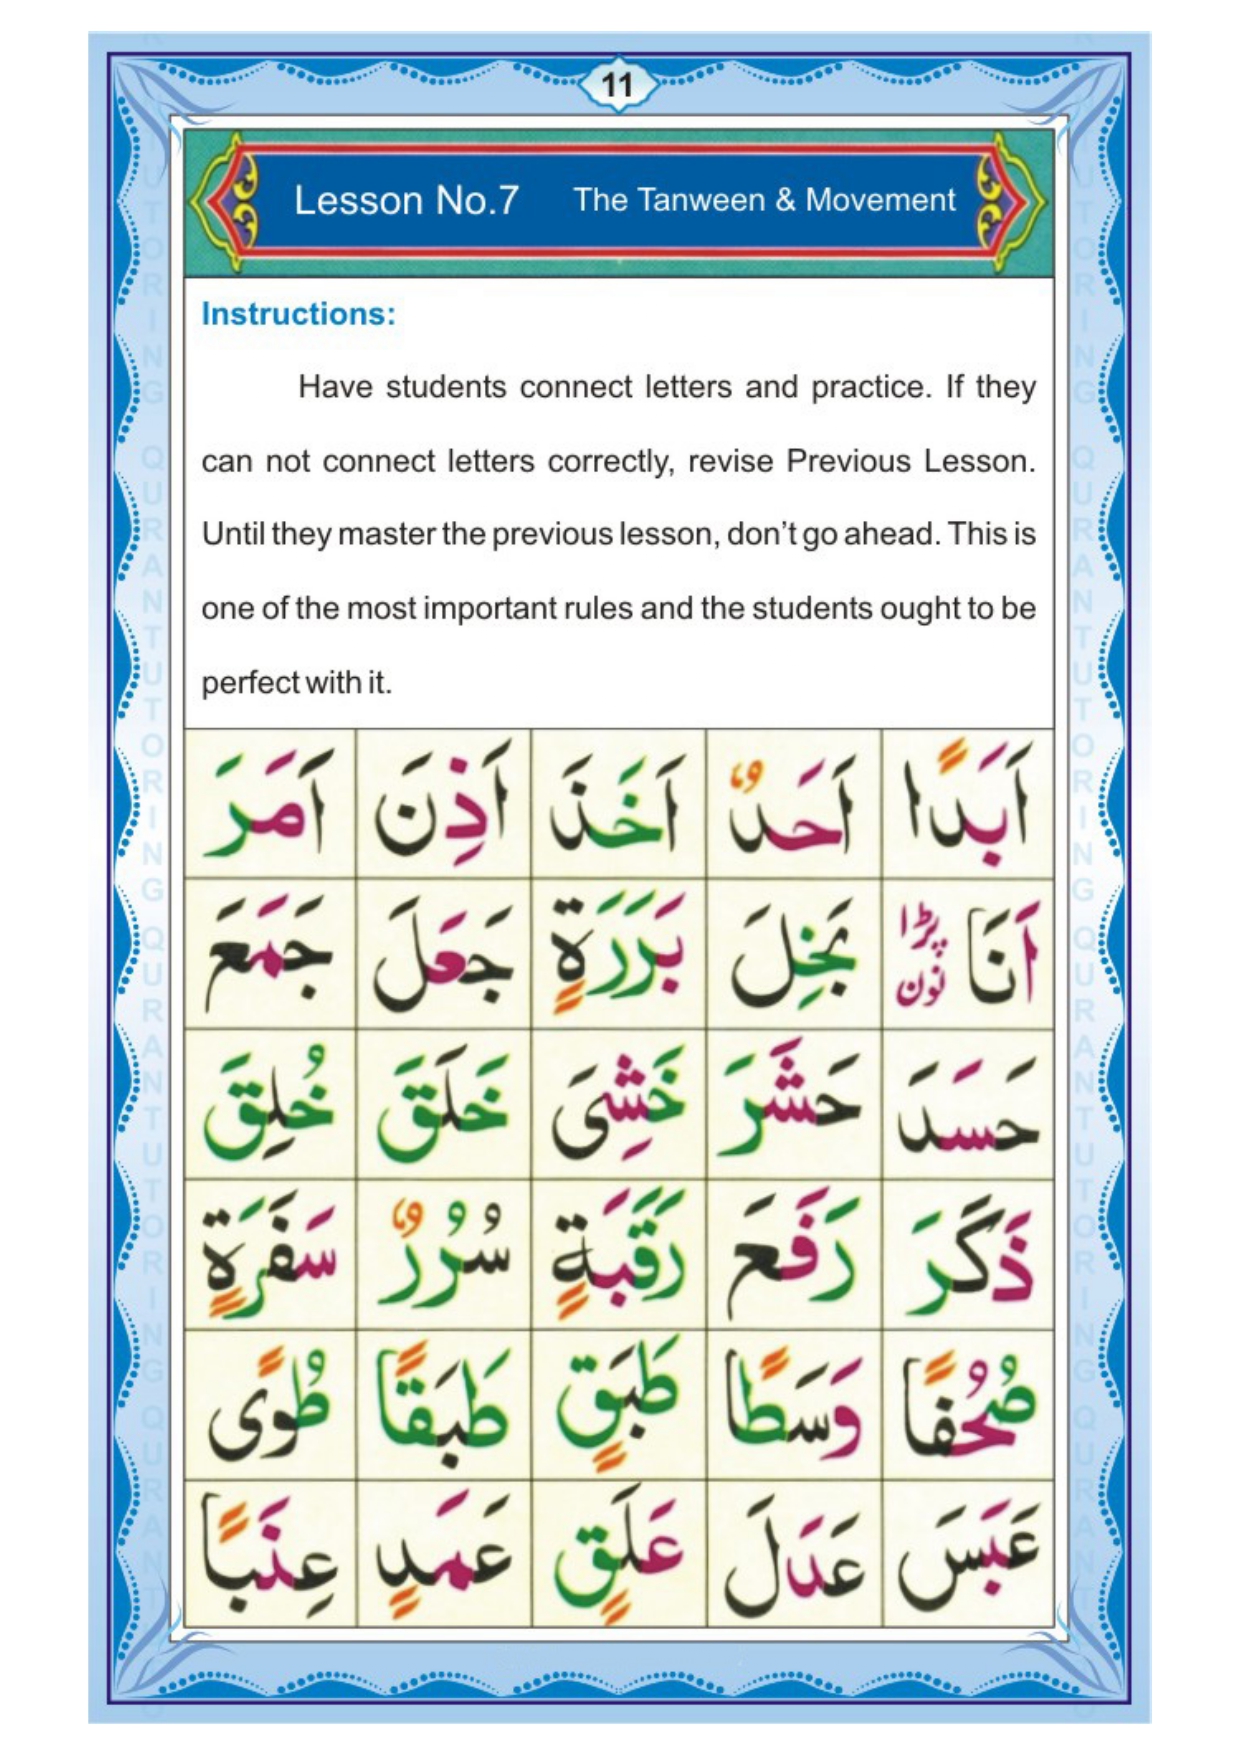 11
Lesson No.7 The Tanween & Movement
Instructions:
Have students connect letters and practice. If they
can not connect letters correctly, revise Previous Lesson.
Until they master the previous lesson, don't go ahead. This is
one of the most important rules and the students ought to be
perfect with it.
اَبَدًا اَحَدٌ اَخَذَ اَذِنَ اَمَرَ
اَنَا پڑا نون بَخِلَ بَرَرَةٍ جَعَلَ جَمَعَ
حَسَدَ حَشَرَ خَشِىَ خَلَقَ خُلِقَ
ذَكَرَ رَفَعَ رَقَبَةٍ سُرُرٌ سَفَرَةٍ
صُحُفًا وَسَطًا طَبَقٍ طَبَقًا طُوًى
عَبَسَ عَدَلَ عَلَقٍ عَمَدٍ عِنَبًا